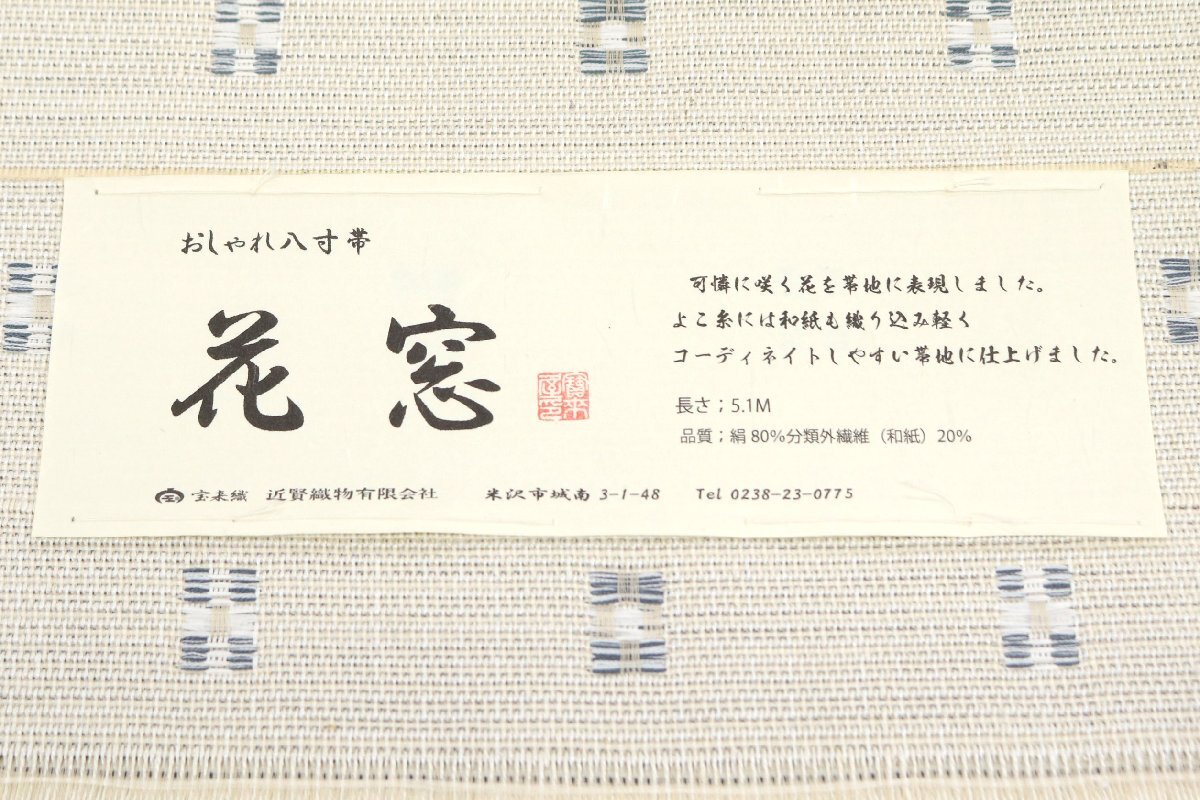 おしゃれ八寸帯
花窓
可憐に咲く花を帯地に表現しました。
よこ糸には和紙も織り込み軽く
コーディネイトしやすい帯地に仕上げました。
長さ；5.1M
品質；絹80%分類外繊維（和紙）20%
宝来織 近賢織物有限会社 米沢市城南 3-1-48 Tel 0238-23-0775